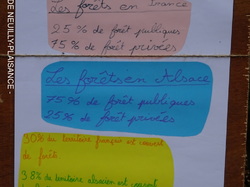 DE NEUILLY-PLAISANCE
Les forêts en France
25% de forêt publiques
75% de forêt privées
Les forêts en Alsace
75% de forêt publiques
25% de forêt privées
30% du territoire français est couvert
de forêt
38% de territoire alsacien est couvert